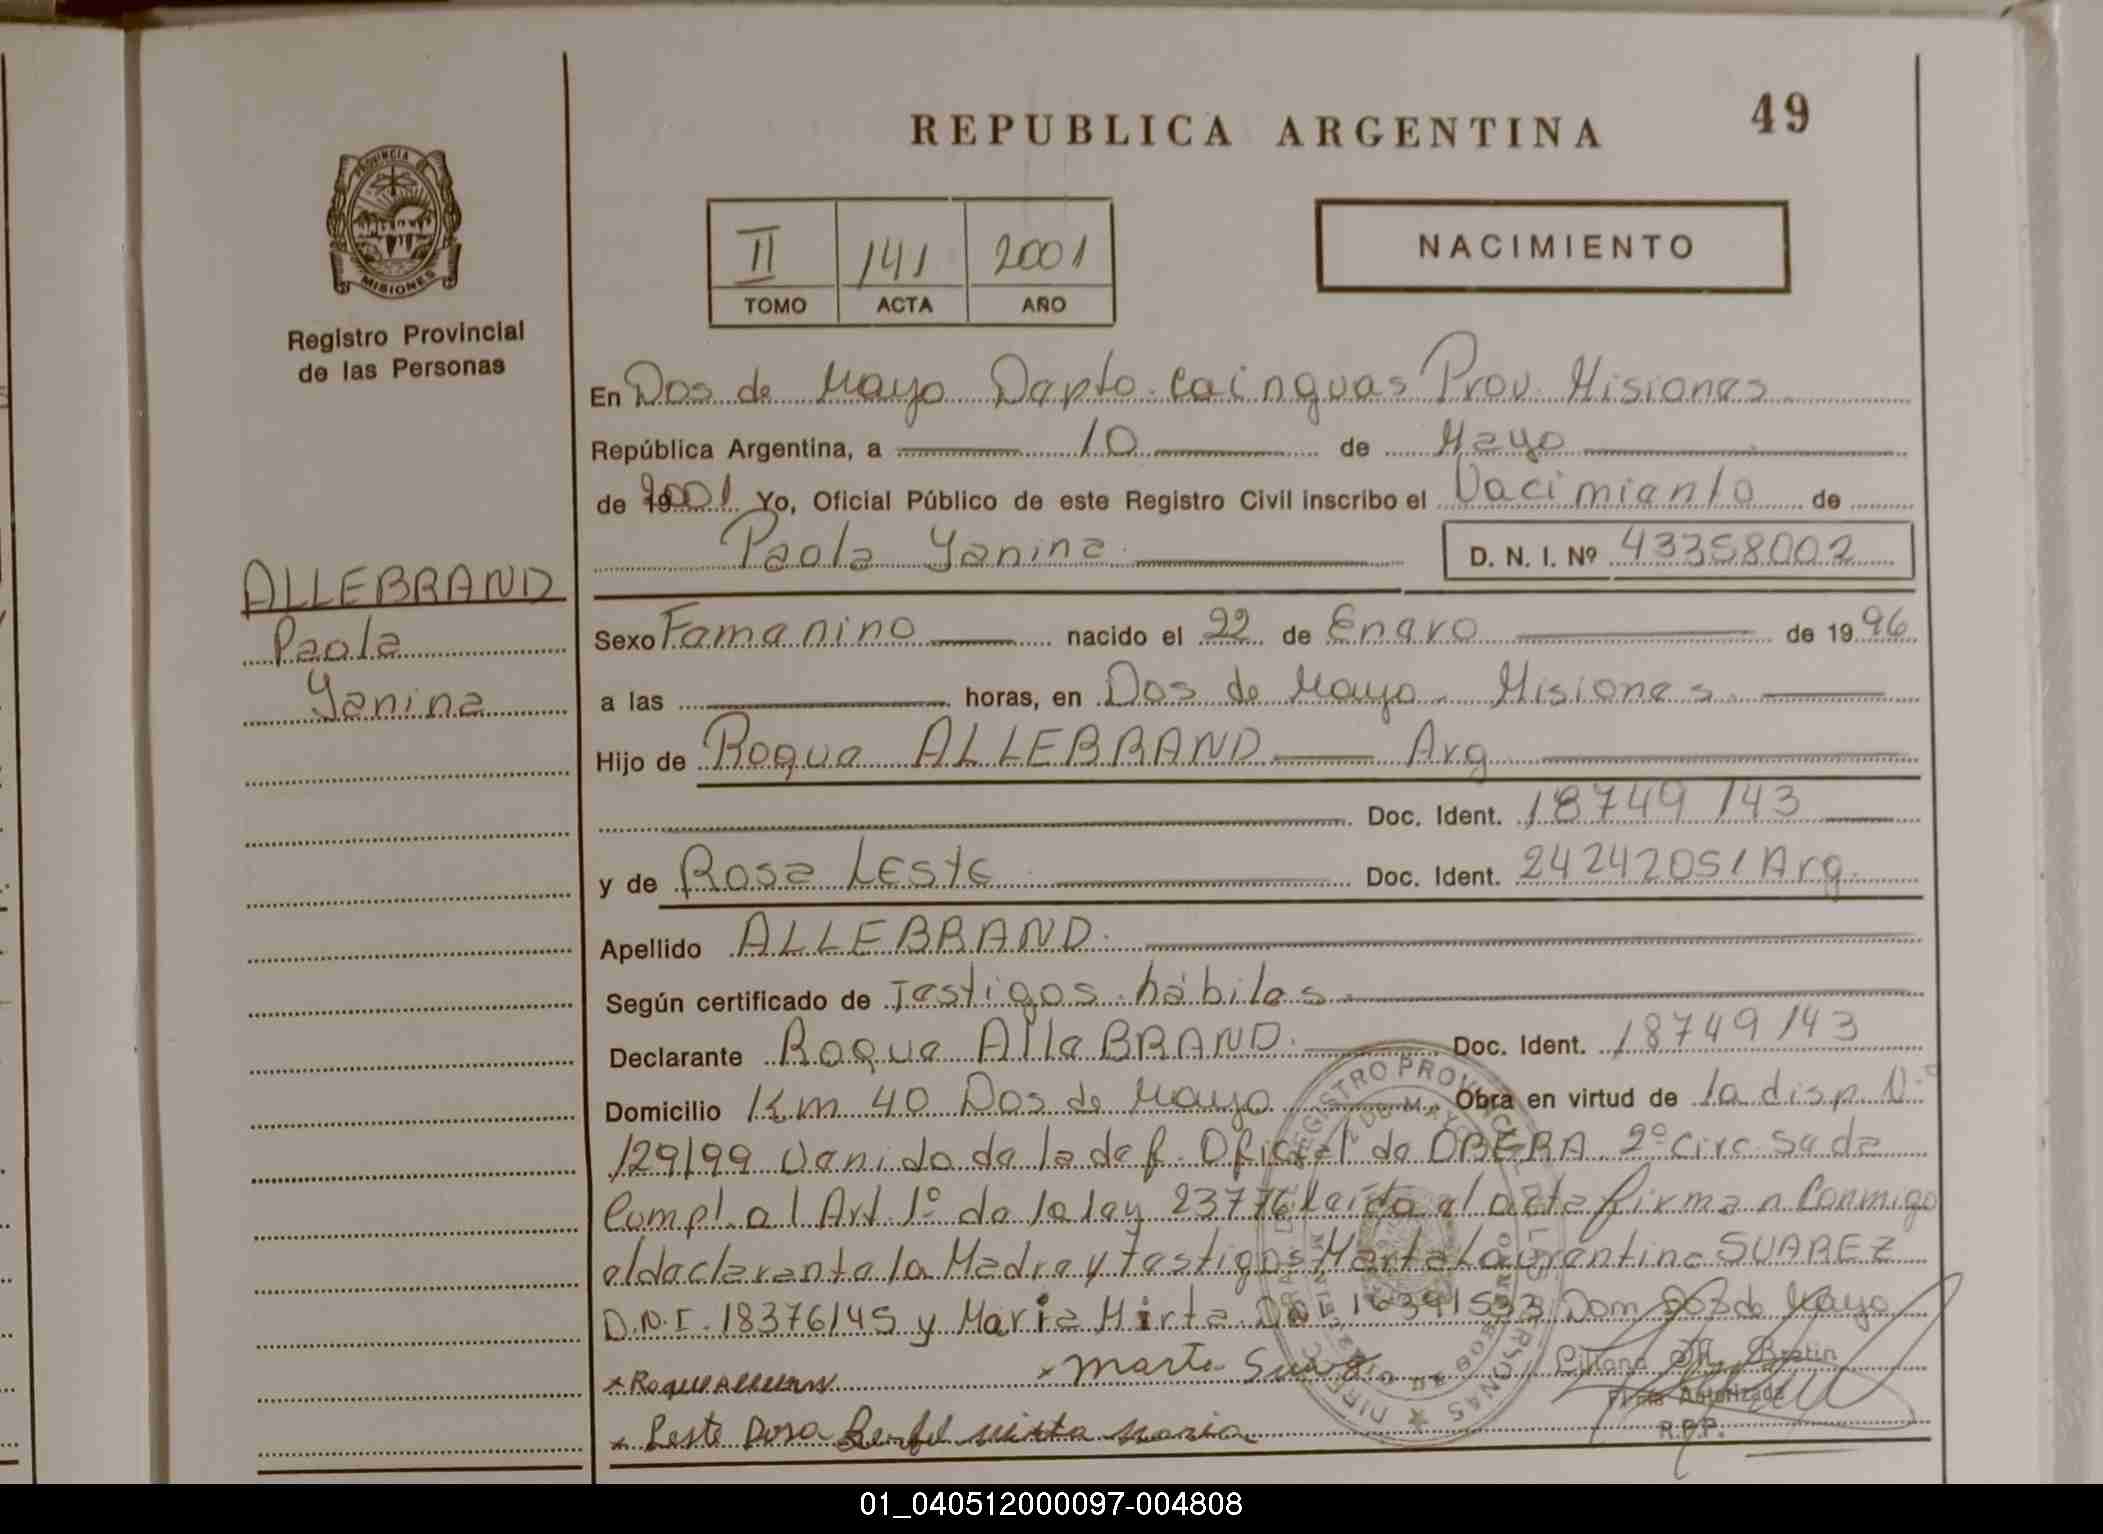 49
REPUBLICA ARGENTINA
PROVINCIA DE
MISIONES
Registro Provincial
de las Personas
II 141 2001
TOMO ACTA AÑO
NACIMIENTO
En Dos de Mayo Depto. Cainguas Prov. Misiones
República Argentina, a 10 de Mayo
de 2001 Yo, Oficial Público de este Registro Civil inscribo el Nacimiento de
Paola Yanina D. N. I. Nº 43358002
ALLEBRAND
Paola
Yanina
Sexo Femenino nacido el 22 de Enero de 1996
a las horas, en Dos de Mayo - Misiones
Hijo de Roque ALLEBRAND Arg
Doc. Ident. 18749143
y de Rosa Leste Doc. Ident. 24242051 Arg.
Apellido ALLEBRAND
Según certificado de Testigos hábiles
Declarante Roque AlleBRAND. Doc. Ident. 18749143
Domicilio Km 40 Dos de Mayo Obra en virtud de la disp. Nº
129/99 Venido de la def. Oficial de OBERA 2º Circ. Se da
Cumpl. al Art. 1º de la ley 23776 Leida el acta firman Conmigo
el declarante la Madre y testigos Marta Laurentina SUAREZ
D.N.I. 18376145 y Maria Mirta DNI 16391533 Dom Dos de Mayo
x Roque x Marta Liliana Bretin
Firma Autorizada
x Leste Rosa mirta maria R.P.P.
01_040512000097-004808